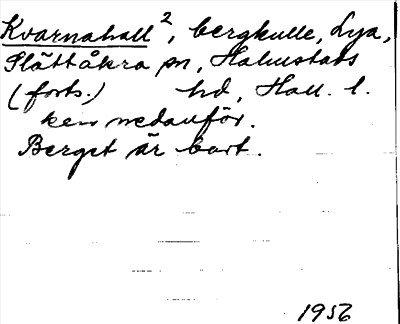 Kvarnahall², bergkulle, Lya,
Slättåkra sn, Halmstads
(forts.) hd, Hall. l.
ken nedanför.
Berget är bort.
1956